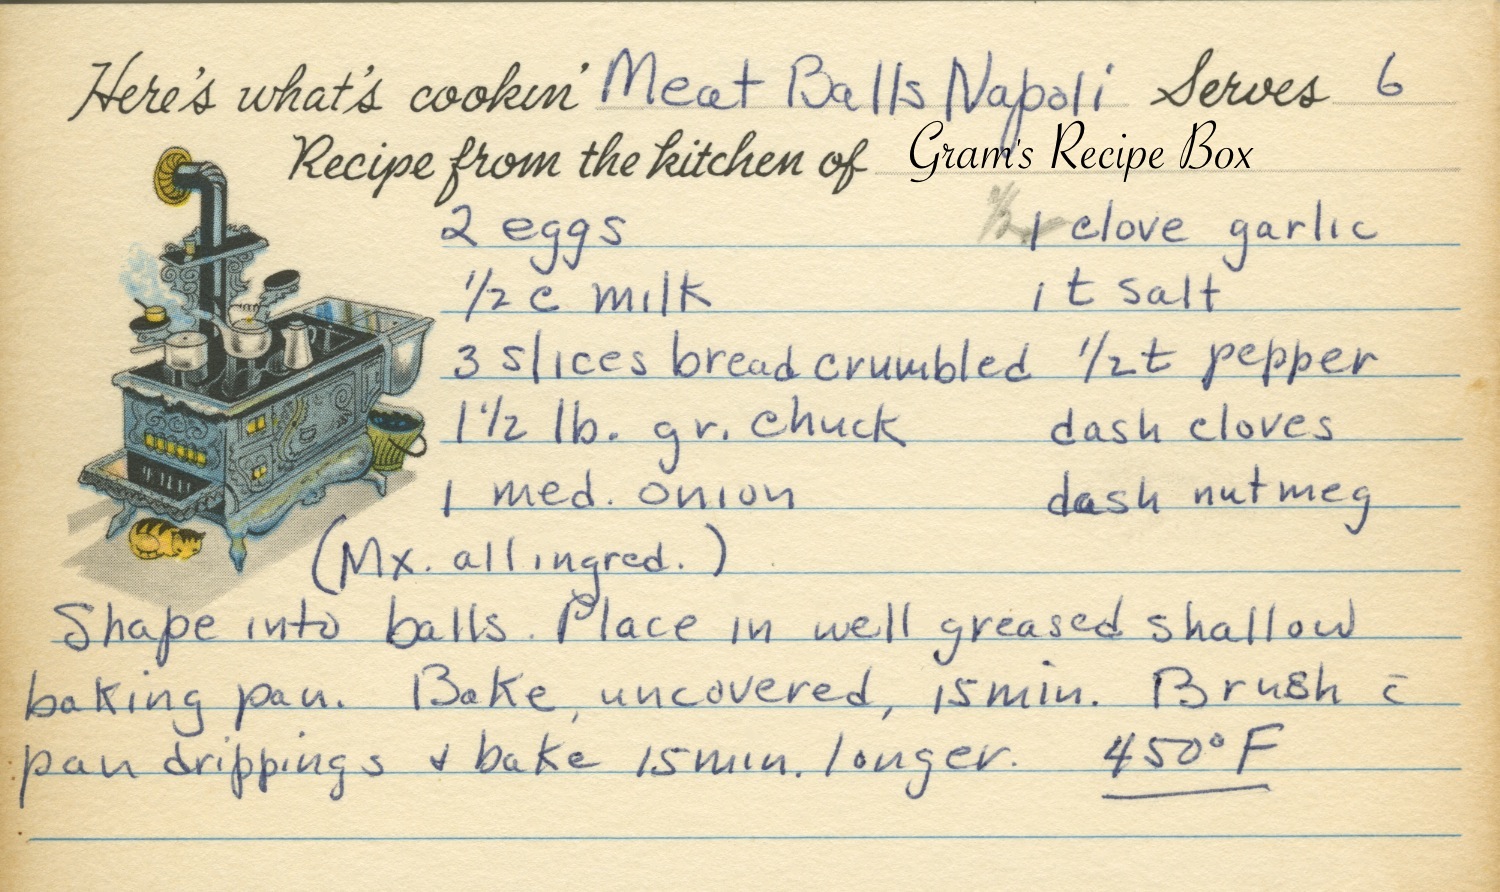 Here's what's cookin' Meat Balls Napoli Serves 6
Recipe from the kitchen of Gram's Recipe Box
2 eggs ½ 1 clove garlic
½ c milk 1 t salt
3 slices bread crumbled ½ t pepper
1 ½ lb. gr. chuck dash cloves
1 med. onion dash nutmeg
(Mx. all ingred.)
Shape into balls. Place in well greased shallow
baking pan. Bake, uncovered, 15 min. Brush c̄
pan drippings & bake 15 min. longer. 450°F